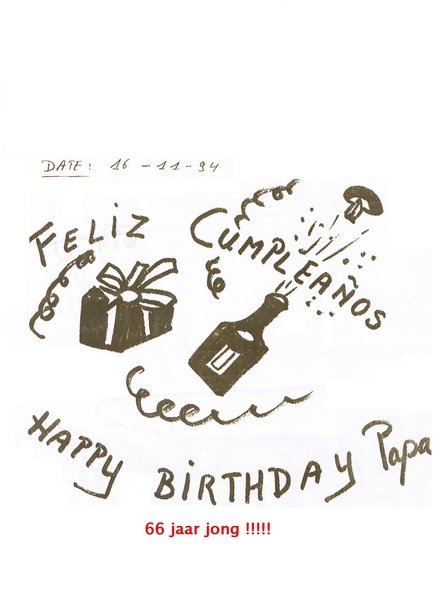 DATE: 16-11-94
FELIZ CUMPLEAÑOS
HAPPY BIRTHDAY Papa
66 jaar jong !!!!!